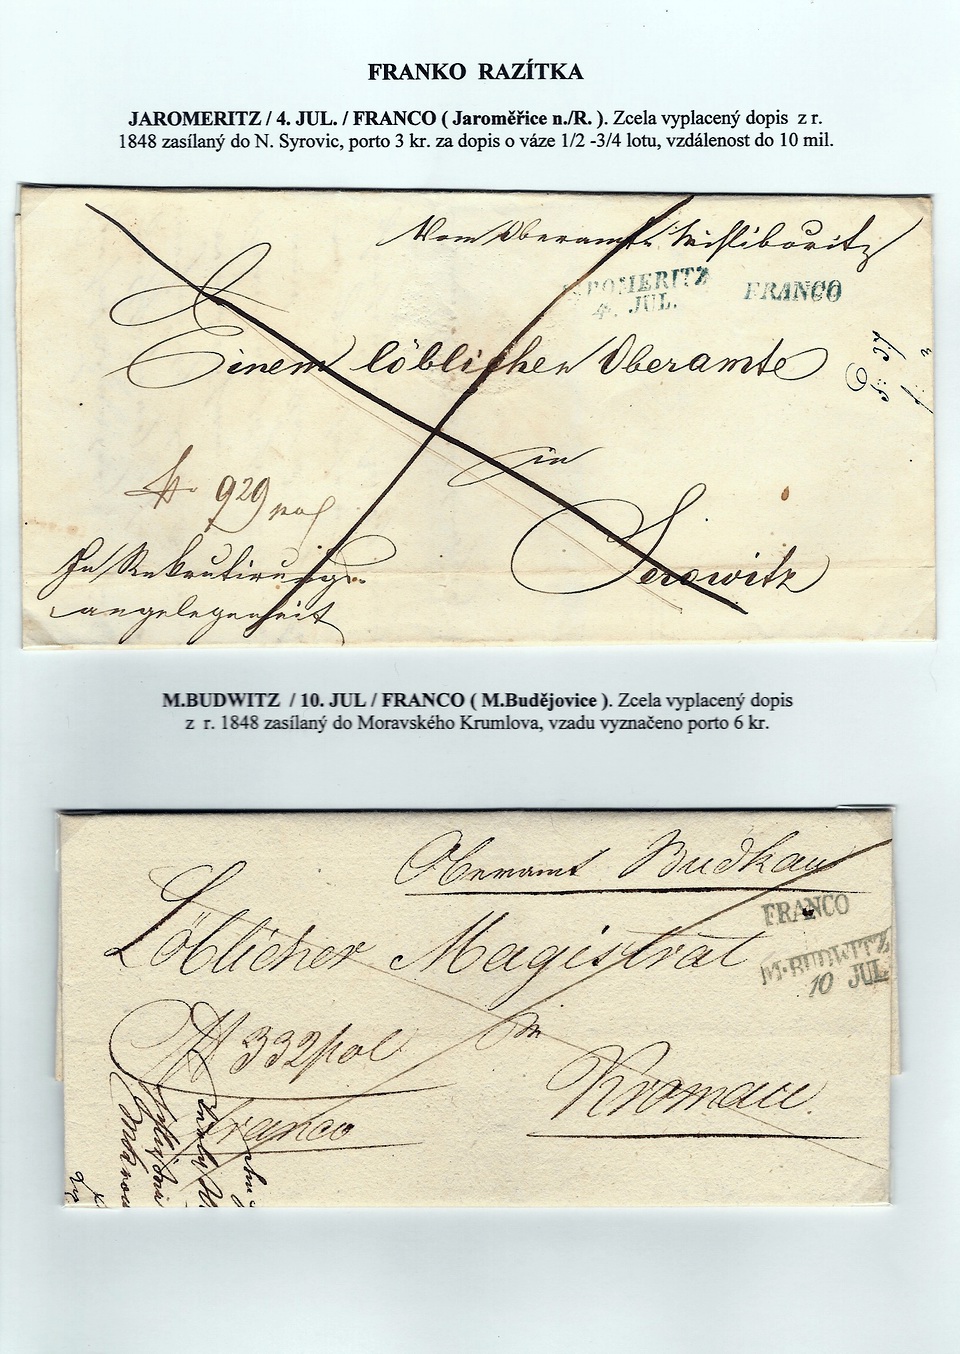 FRANKO RAZÍTKA
JAROMERITZ / 4. JUL. / FRANCO ( Jaroměřice n./R. ). Zcela vyplacený dopis z r.
1848 zasílaný do N. Syrovic, porto 3 kr. za dopis o váze 1/2 -3/4 lotu, vzdálenost do 10 mil.
Vom Oberamte Mißliboritz
ROMERITZ FRANCO
4. JUL.
Einem löblichen Oberamte
in
929 pol
Serowitz
In Rekrutirungs-
angelegenheit
M.BUDWITZ / 10. JUL / FRANCO ( M.Budějovice ). Zcela vyplacený dopis
z r. 1848 zasílaný do Moravského Krumlova, vzadu vyznačeno porto 6 kr.
Oberamt Budkau
FRANCO
Löblicher Magistrat
M.BUDWITZ
10 JUL
332 pol
in
Kromau.
Franco